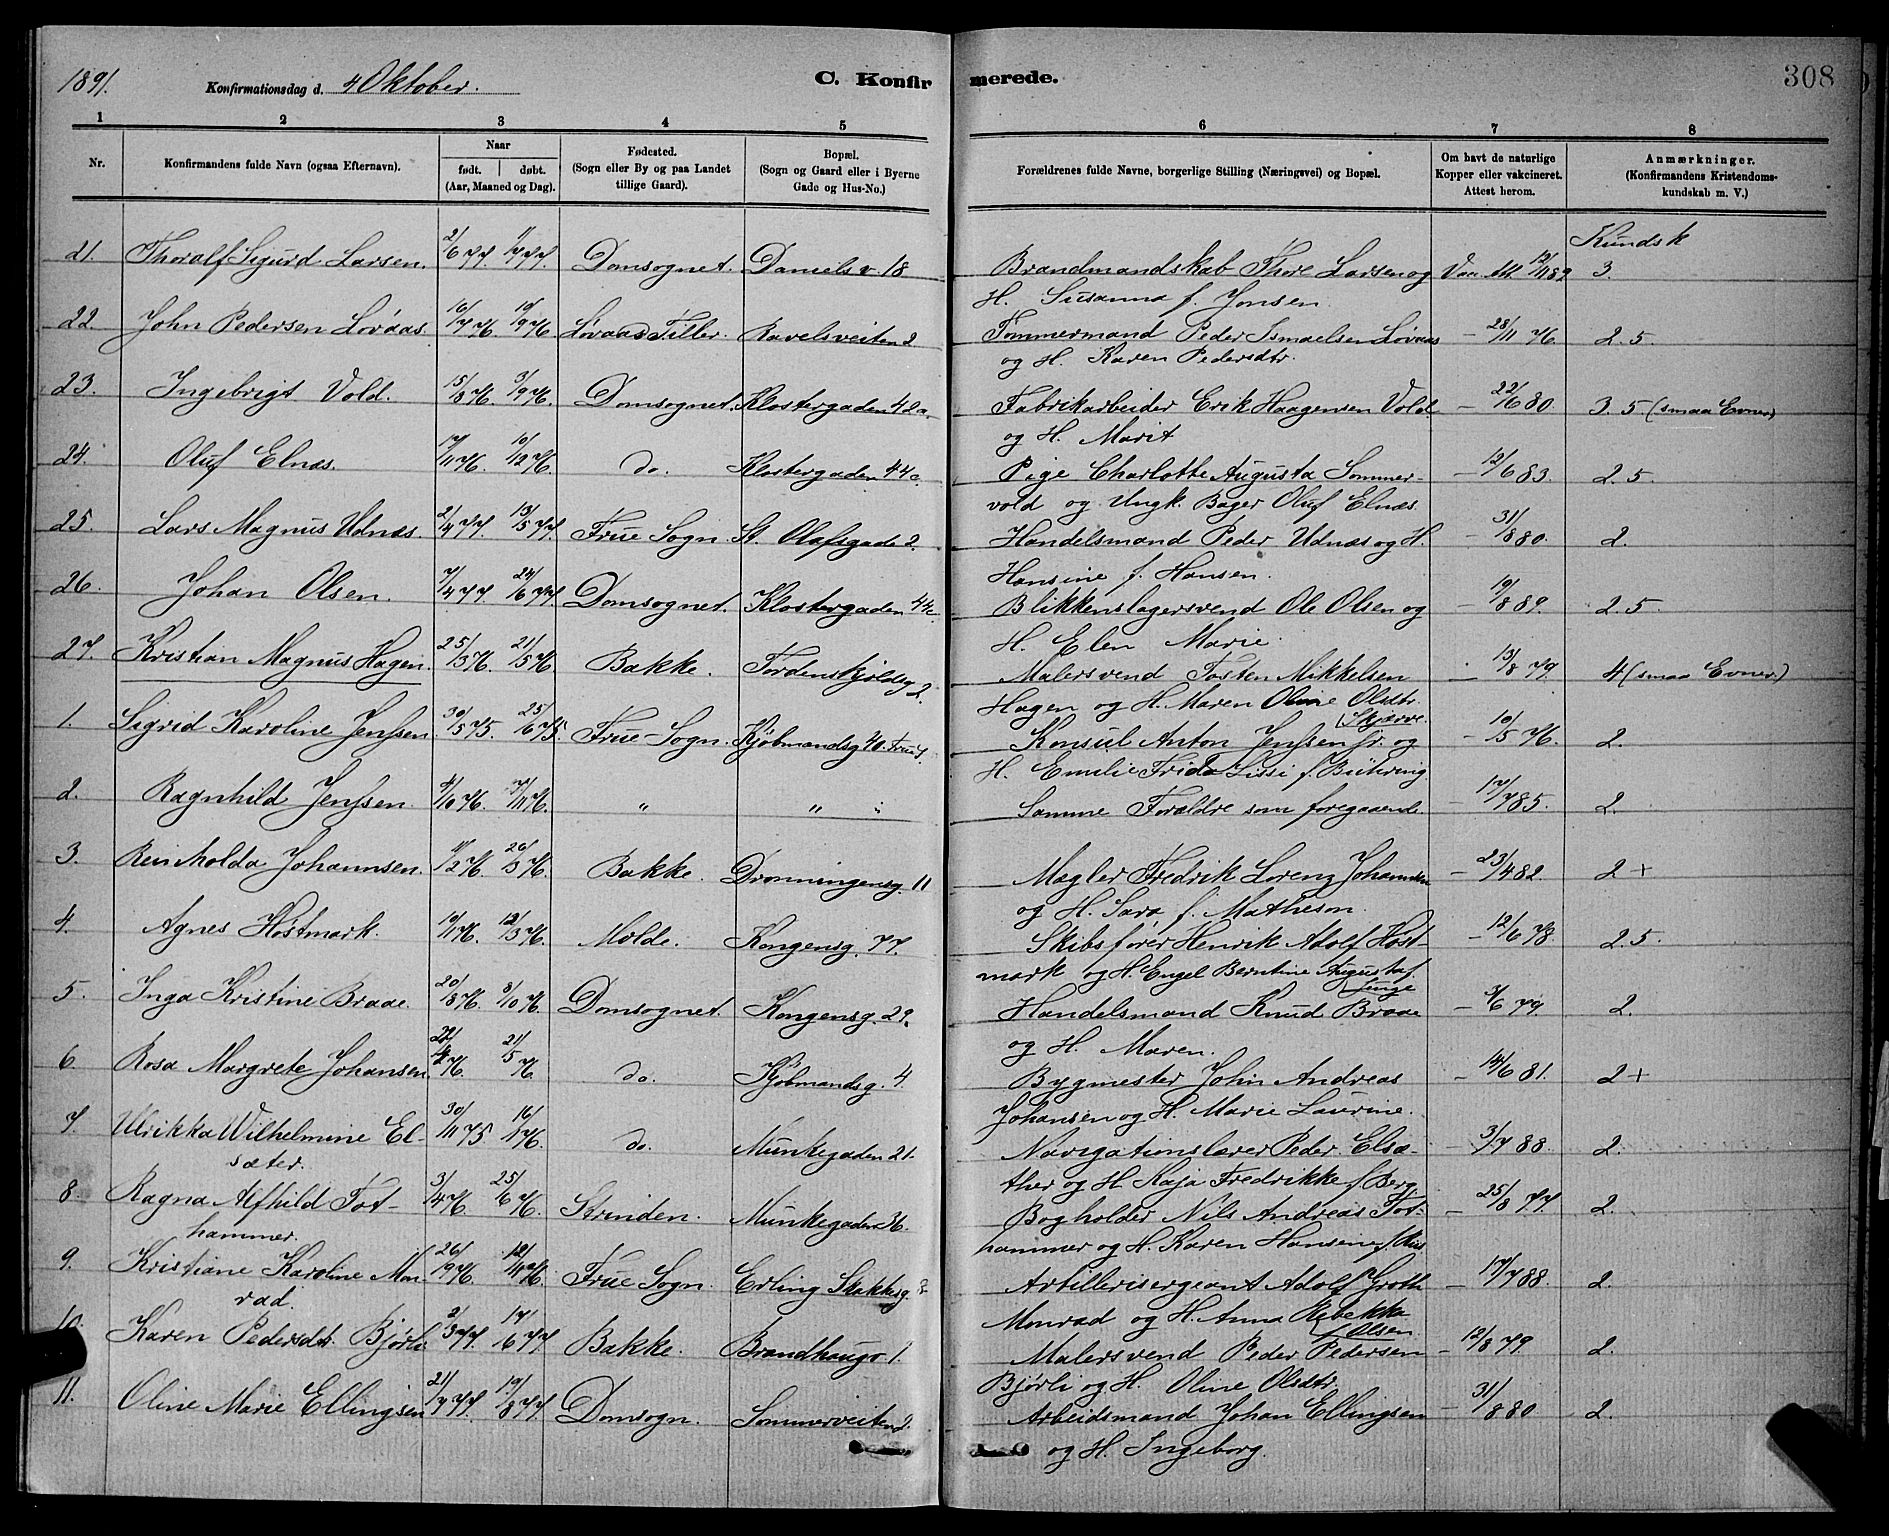 1891.
Konfirmationsdag d. 4 Oktober.
C. Konfirmerede.
308
1 2 3 4 5 6 7 8
Nr.
Konfirmandens fulde Navn (ogsaa Efternavn).
Naar
født. døbt.
(Aar, Maaned og Dag).
Fødested.
(Sogn eller By og paa Landet
tillige Gaard).
Bopæl.
(Sogn og Gaard eller i Byerne
Gade og Hus-No.)
Forældrenes fulde Navne, borgerlige Stilling (Næringsvei) og Bopæl.
Om havt de naturlige
Kopper eller vakcineret.
Attest herom.
Anmærkninger.
(Konfirmandens Kristendoms-
kundskab m. V.)
Kundsk
21. Thoralf Sigurd Larsen. 2/6 77. Domsognet. Daniels v. 18 Brandmandskab Thore Larsen og Vac. Att 12/11 89. 3.
H. Susanna f. Jonsen.
22. John Pedersen Lovaas. 16/7 76. 10/9 76. Lovaas Tiller. Ravelsveiten 2 Tømmermand Peder Ismaelsen Lovaas – 28/11 76. 2.5.
og H. Karen Pedersdtr.
23. Ingebrigt Vold. 15/8 76. 3/9 76. Domsognet. Klostergaden 42a. Fabrikarbeider Erik Haagensen Vold – 22/6 80. 3.5 (smaa Evner)
og H. Marit
24. Oluf Elnæs. 17/11 76. 10/12 76. do. Klostergaden 44c. Pige Charlotte Augusta Sommer- – 12/6 83. 2.5.
vold og Ungk. Bager Oluf Elnæs.
25. Lars Magnus Udnæs. 2/4 77. 13/5 77. Frue Sogn. St. Olafsgade 2. Handelsmand Peder Udnæs og H. – 31/8 80. 2.
Hansine f. Hansen.
26. Johan Olsen. 7/4 77. 24/6 77. Domsognet. Klostergaden 44c. Blikkenslagersvend Ole Olsen og – 19/8 89. 2.5.
H. Elen Marie.
27. Kristian Magnus Hagen. 25/3 76. 21/5 76 Bakke. Tordenskjoldsg 2. Malersvend Tosten Mikkelsen – 13/8 79. 4 (smaa Evner.)
Hagen og H. Maren Oline Olsdtr.
Skjærve.
1. Sigrid Karoline Jenssen 30/5 75. 25/6 75. Frue-Sogn. Kjøbmandsg 40. Konsul Anton Jenssen jr. og – 10/5 76. 2.
H. Emilie Frida Lissi f. Bühring.
2. Ragnhild Jenssen 8/10 76. 7/11 76. " " " Samme Forældre som foregaaende – 17/7 85. 2.
3. Reinholda Johannsen. 11/2 76. 26/3 76. Bakke. Dronningensg. 11 Mægler Fredrik Lorenz Johannsen – 23/4 82. 2+
og H. Sara f. Matheson.
4. Agnes Høstmark. 10/1 76. 12/3 76. Molde. Kongensg. 77. Skibsfører Henrik Adolf Høst- – 12/6 78 2.5.
mark og H. Engel Berntine Augusta f.
Junge
5. Inga Kristine Braae. 20/8 76. 8/10 76. Domsognet. Kongensg. 29. Handelsmand Knud Braae 6 79. 2.
og H. Maren.
6. Rosa Margrete Johansen. 76 21/5 76 do. Kjøbmandsg. 4. Bygmester John Andreas – 14/6 81. 2+
Johansen og H. Marie Laurine.
7. Ulrikka Wilhelmine El- 30/11 75 16/1 76. do. Munkegaden 21. Navigationslærer Peder Elsæ- – 3/7 88. 2.
sæter.
ther og H. Kaja Fredrikke f. Berg.
8. Ragna Alfhild Tot- 3/4 76. 25/6 76. Strinden. Munkegaden 36. Bogholder Nils Andreas Tot- – 25/8 77 2.
hammer.
hammer og H. Karen Hansine f.
9. Kristiane Karoline Mon- 26/9 76. 12/11 76. Frue Sogn. Erling Skakkesg. Artillerisergeant Adolf Groth – 17/7 88. 2.
rad.
Monrad og H. Anna Rebekka
f Olsen.
10. Karen Pedersdtr Bjørli 2/3 77. 17/6 77 Bakke. Brandhaugv 1. Malersvend Peder Pedersen – 12/8 79. 2.
Bjørli og H. Oline Olsdtr.
11. Oline Marie Ellingsen 21/7 77. 19/8 77. Domsogn. Sommerveiten Arbeidsmand Johan Ellingsen – 31/8 80 2.
og H. Ingeborg.